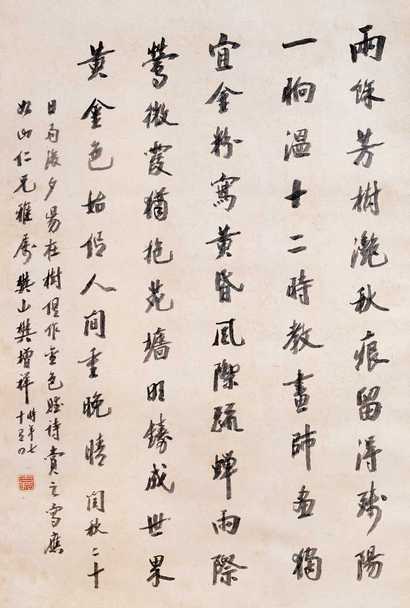 雨餘芳樹灩秋痕留得殘陽
一晌溫十二時教畫師畫獨
宜金粉寫黃昏風際疏蟬雨際
鶯微霞猶抱苑牆明鑄成世界
黃金色始信人間重晚晴 閏秋二十
日雨後夕陽在樹俱作金色賦詩賞之書應
如山仁兄雅屬樊山樊增祥時年七十有四